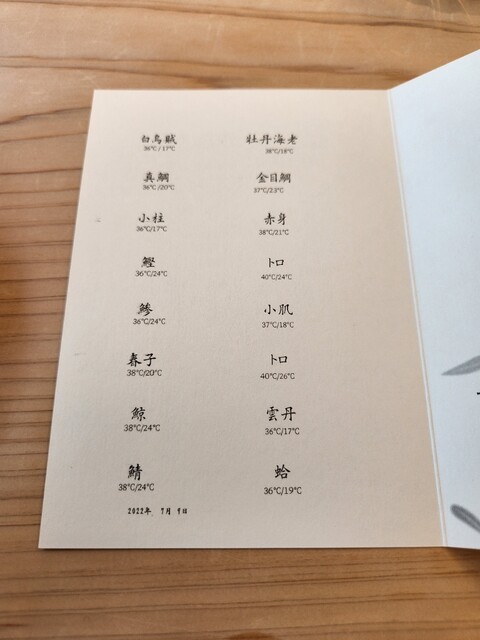 白烏賊
36°C / 17°C
真鯛
36°C /20°C
小柱
36°C/17°C
鰹
36°C/24°C
鯵
36°C/24°C
春子
38°C/20°C
鯨
38°C/24°C
鯖
38°C/24°C
2022年 7月 9日
牡丹海老
38°C/18°C
金目鯛
37°C/23°C
赤身
38°C/21°C
トロ
40°C/24°C
小肌
37°C/18°C
トロ
40°C/26°C
雲丹
36°C/17°C
蛤
36°C/19°C